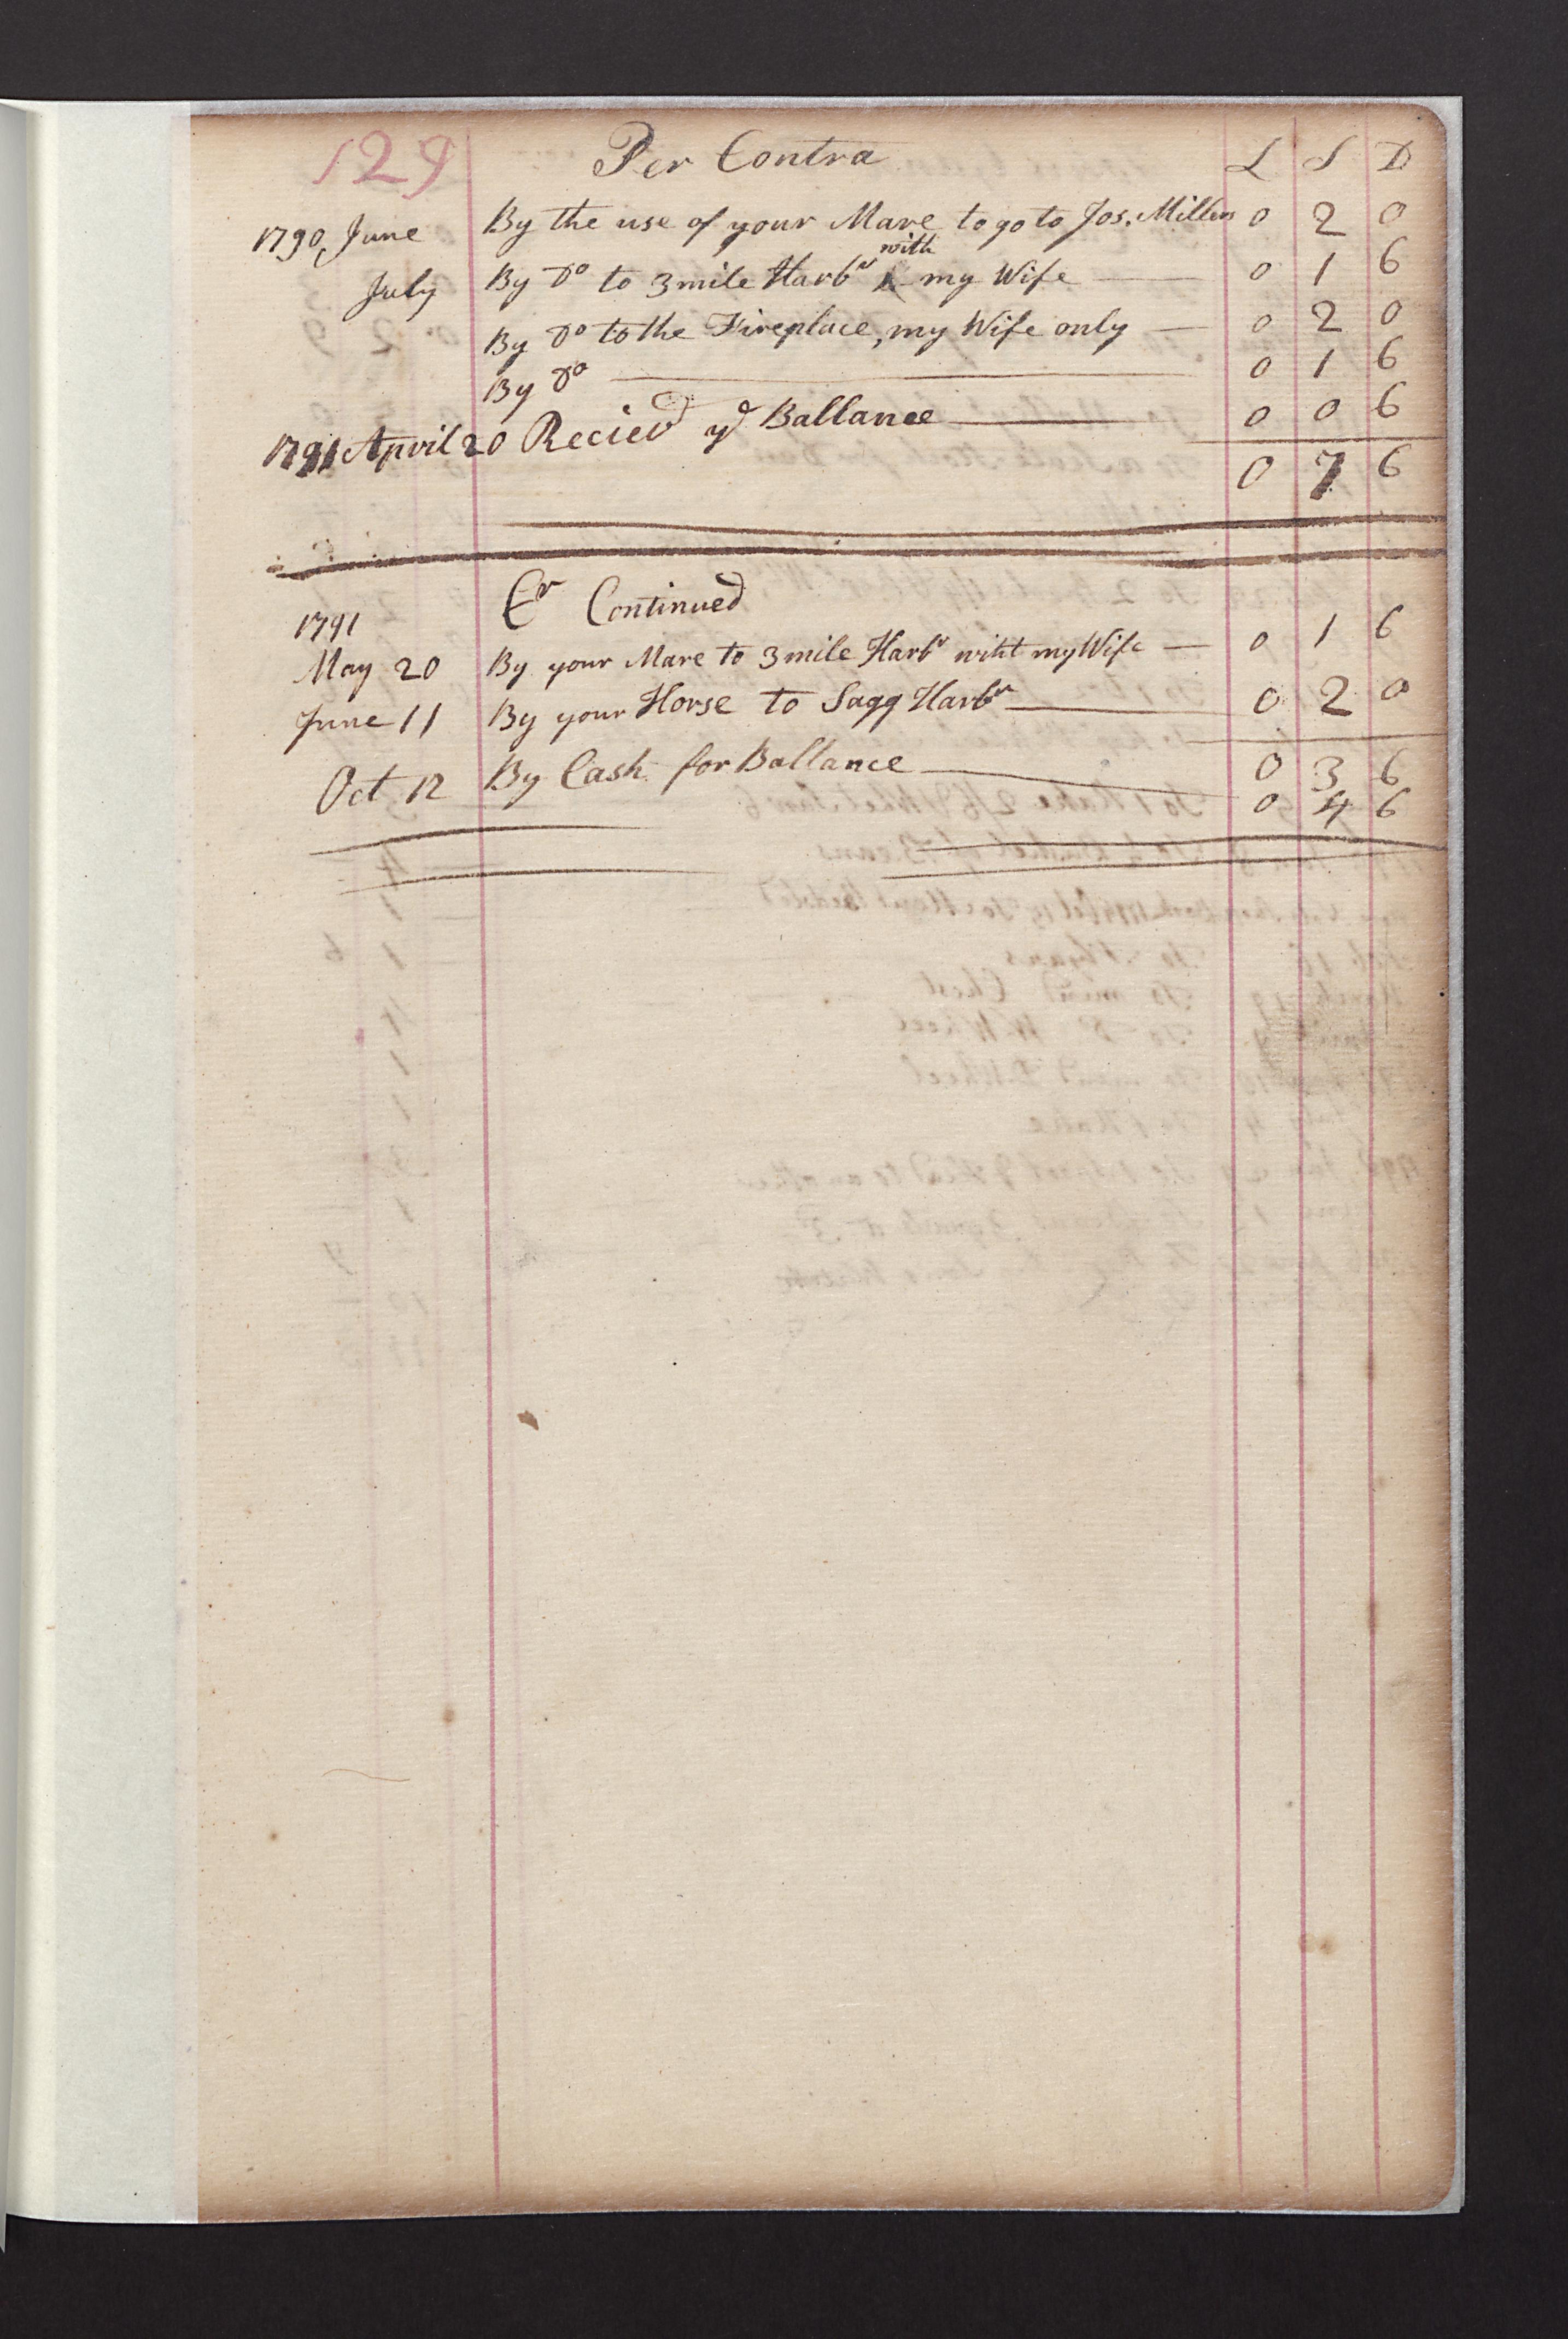 129 Per Contra L S D
1790, June By the use of your Mare to go to Jos. Millers 0 2 0
July By Do to 3 mile Harbr with my Wife 0 1 6
By Do to the Fireplace, my Wife only 0 2 0
By Do 0 1 6
1791 April 20 Recievd ye Ballance 0 0 6
0 7 6
1791 Cr Continued
May 20 By your Mare to 3 mile Harbr wiht my Wife 0 1 6
June 11 By your Horse to Sagg Harbr 0 2 0
0 3 6
Oct 12 By Cash for Ballance 0 4 6